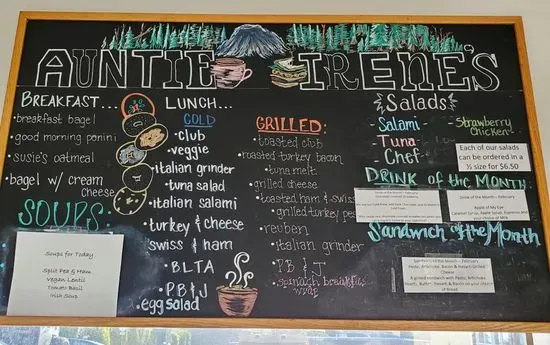 AUNTIE IRENE'S
BREAKFAST...
•breakfast bagel
•good morning panini
•susie's oatmeal
•bagel w/ cream
cheese
SOUPS:
Soups for Today
Split Pea & Ham
Vegan Lentil
Tomato Basil
Irish Soup
LUNCH...
COLD
•club
•veggie
•italian grinder
•tuna salad
•italian salami
•turkey & cheese
swiss & ham
•BLTA
•PB & J
•egg salad
GRILLED:
•toasted club
•roasted turkey bacon
•tuna melt
•grilled cheese
•toasted ham & swiss
•grilled turkey pesto
•reuben
•italian grinder
•PB & J
•spinach breakfast
wrap
Salads
•Salami
•Tuna
•Chef
•Strawberry
Chicken
Each of our salads
can be ordered in a
½ size for $6.50
DRINK of the MONTH
Drink of the Month – February
Drink of the Month – February
Apple of My Eye
Caramel Syrup, Apple Syrup, Espresso and
your choice of Milk
Sandwich of the Month
Sandwich of the Month – February
Pesto, Artichoke, Bacon & Havarti Grilled
Cheese
A grilled sandwich with Pesto, Artichoke
Hearts, Bacon on your choice
of Bread